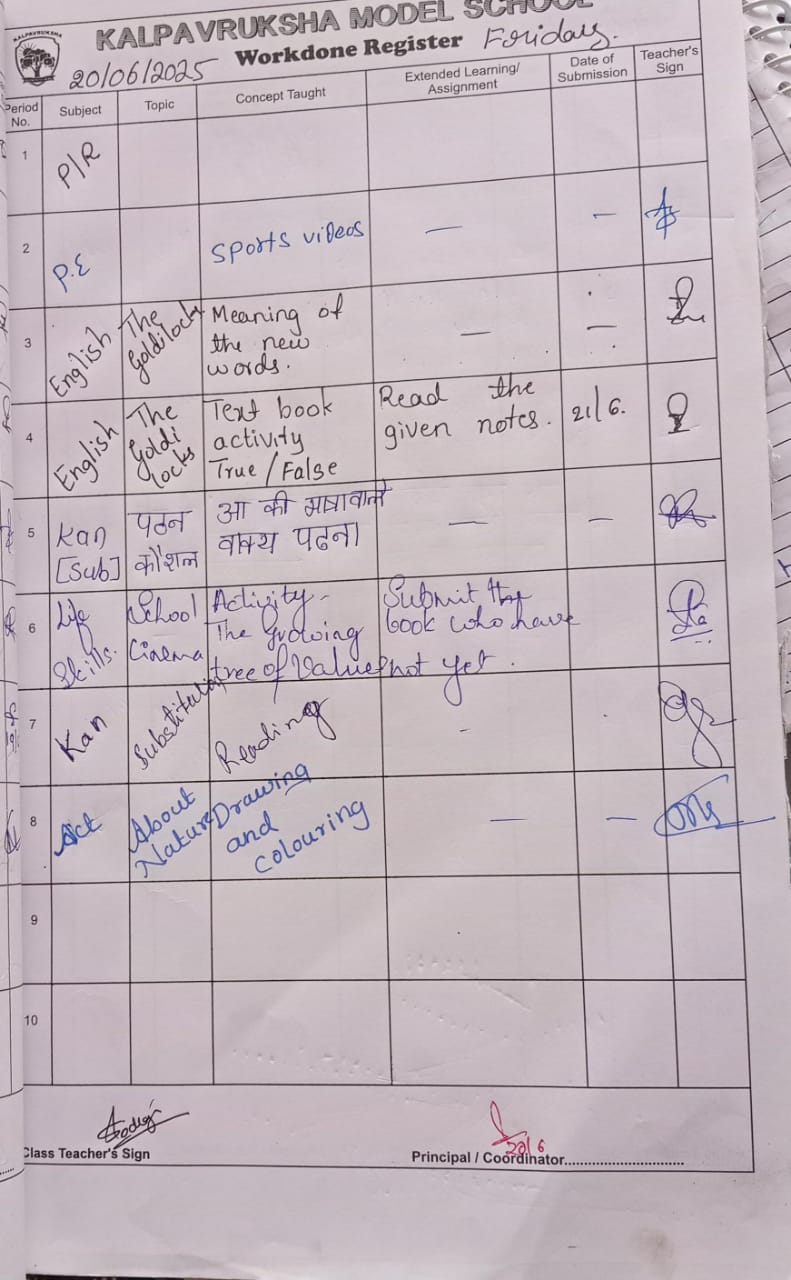 KALPAVRUKSHA
KALPAVRUKSHA MODEL SCHOOL
20/06/2025 Workdone Register Foriday.
Period No. Subject Topic Concept Taught Extended Learning/ Assignment Date of Submission Teacher's Sign
1 P/R
2 P.E Sports videos — —
3 English The Goldilocks Meaning of
the new
words. — —
4 English The Goldi locks Text book
activity
True / False
Read the
given notes. 21/6.
5 Kan [Sub] पठन कौशल आ की मात्रावाले
वाक्य पढना। — —
6 Life Skills. School Cinema Activity-
The Growing
tree of Values
Submit the
book who have
not yet.
7 Kan Substitution Reading -
8 Act About Nature Drawing
and
colouring — —
9
10
Class Teacher's Sign
20/6
Principal / Coordinator..............................